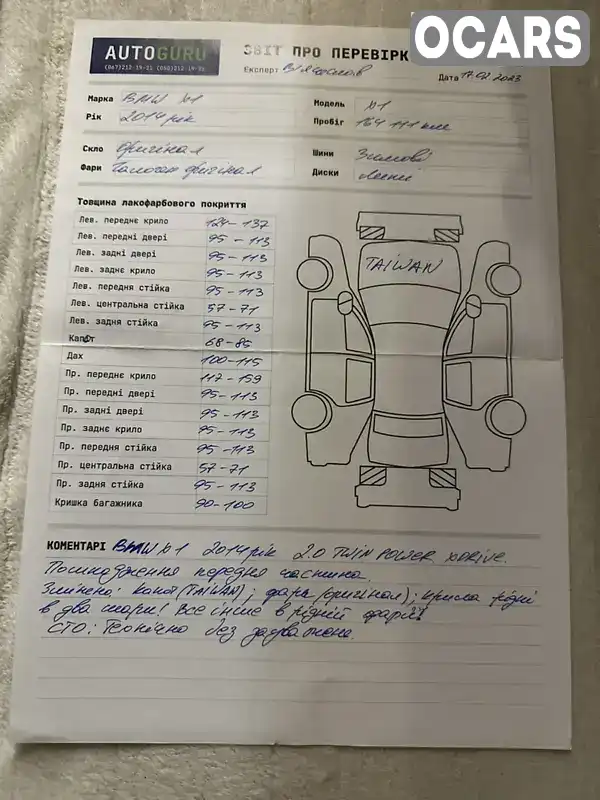 AUTOGURU
ЗВІТ ПРО ПЕРЕВІРК
OCARS
Експерт Вячеслав
Дата 17.02.2023
Марка BMW x1
Модель x1
Рік 2014 рік
Пробіг 164 111 км
Скло Оригінал
Шини Зимові
Фари Галоген оригінал
Диски Литі
Товщина лакофарбового покриття
Лев. переднє крило 124-137
Лев. передні двері 95-113
Лев. задні двері 95-113
Лев. заднє крило 95-113
Лев. передня стійка 95-113
Лев. центральна стійка 57-71
Лев. задня стійка 95-113
Капот 68-85
Дах 100-115
Пр. переднє крило 147-159
Пр. передні двері 95-113
Пр. задні двері 95-113
Пр. заднє крило 95-113
Пр. передня стійка 95-113
Пр. центральна стійка 57-71
Пр. задня стійка 95-113
Кришка багажника 90-100
TAIWAN
КОМЕНТАРІ BMW x1 2014 рік 2.0 TWIN POWER XDRIVE.
Пошкодження передня частина.
Змінено: капот (TAIWAN); фара (оригінал); крила рідні
в два шари! Все інше в рідній фарбі
СТО: Технічно без зауважень.